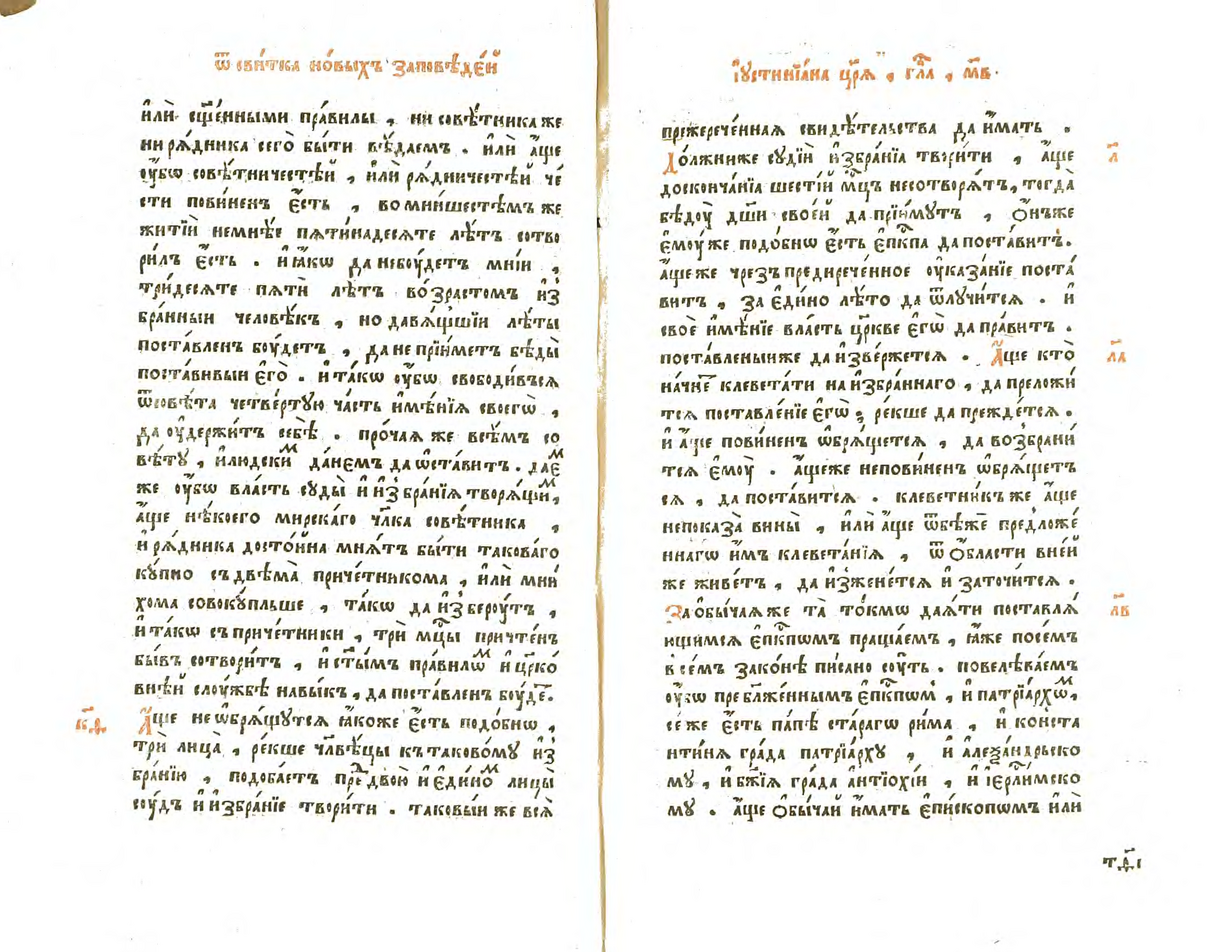 ѿ сви́тка но́выхъ за́повѣде́й
и҆лѝ сщ҃е́нными пра́вилы , ни совѣ́тника же
ни рѧ́дника сего̀ бы́ти вѣ́даемъ . и҆лѝ а҆́ще
ᲂу҆́бѡ совѣ́тничестѣй , и҆лѝ рѧ́дничестѣй че́
сти пови́ненъ є҆́сть , во мни́шестѣмъ же
житїѝ немнѣ́е пѧти́надесѧте лѣ́тъ сотво
ри́лъ є҆́сть . и҆ ꙗ҆́кѡ да небꙋ́детъ мні́и ,
три́десѧте пѧтѝ лѣ́тъ во́зрастомъ и҆з̾
бра́нныи человѣ́къ , но да вѧ́щшїи лѣ́ты
поста́вленъ бꙋ́детъ , да не прїи́метъ бѣды̀
поста́вивыи є҆го̀ . и҆ та́кѡ ᲂу҆́бѡ свободи́въсѧ
ѿсовѣ́та четве́ртꙋю ча́сть и҆мѣ́нїѧ своегѡ̀ ,
да ᲂу҆держи́тъ себѣ̀ . про́чаѧ же всѣ́мъ со
вѣ́тꙋ , и҆людски́ⷨ да́немъ да ѡ҆ста́витъ . дае́ⷨ
же ᲂу҆́бѡ вла́сть сꙋды̀ и҆ и҆з̾бра́нїѧ творѧ́щи́ⷨ,
а҆́ще нѣ́коего мирска́го чл҃ка совѣ́тника ,
и҆ рѧ́дника досто́йна мнѧ́тъ бы́ти такова́го
кꙋ́пно съ двѣ́мѧ̀ приче́тникома , и҆лѝ мни́
хома совокꙋ́пльше , та́кѡ да и҆з̾берꙋ́тъ ,
и҆ та́кѡ съ приче́тники , трѝ мц҃ы причте́нъ
бы́въ сотвори́тъ , и҆ ст҃ы́мъ пра́вилѡⷨ и҆ цр҃ко́
внѣй слꙋ́жбѣ навы́къ , да поста́вленъ бꙋ́де.
к҃ѳ
А҆́ще не ѡ҆брѧ́щꙋтсѧ ꙗ҆́коже є҆́сть подо́бнѡ ,
трѝ лица̀ , ре́кше чл҃вѣ́цы къ таково́мꙋ и҆з̾
бра́нїю , подоба́етъ пред̾ двою̀ и҆ є҆ди́но́ⷨ лицы̀
сꙋ́дъ и҆ и҆збра́нїе твори́ти . таковы́и же всѧ̀
і҆ꙋстинїа́на цр҃ѧ̀ , гл҃а , м҃в .
прежерече́ннаѧ свидѣ́тельства да и҆́мать .
л҃
До́лжни же сꙋдїѝ и҆збра́нїѧ твори́ти , а҆́ще
досконча́нїѧ шестѝ мц҃ъ несотворѧ́тъ, тогда̀
бѣ́дꙋ̀ дш҃и свое́й да прїи́мꙋтъ , ѻ҆́нъже
є҆мꙋ́же подо́бнѡ є҆́сть є҆пⷭ҇кпа да поста́витъ.
а҆́ще же чрезъ предирече́нное ᲂу҆каза́нїе поста́
витъ , за є҆ди́но лѣ́то да ѿлꙋчи́тсѧ . и҆
своѐ и҆мѣ́нїе вла́сть цр҃кве є҆гѡ̀ да пра́витъ .
поста́вленыиже да и҆зве́ржетсѧ . А҆́ще кто̀
л҃а
начне́ клевета́ти на и҆збра́ннаго , да преложи́
тсѧ поставле́нїе є҆гѡ̀ ; ре́кше да прежде́тсѧ .
и҆ а҆́ще пови́ненъ ѡ҆брѧ́щетсѧ , да возбрани́
тсѧ є҆мꙋ̀ . а҆́щеже непови́ненъ ѡ҆брѧ́щетъ
сѧ , да поста́витсѧ . клеветни́къ же а҆́ще
непоказа̀ вины̀ , и҆лѝ а҆́ще ѿбѣжѐ предложе́
ннагѡ и҆́мъ клевета́нїѧ , ѿ ѻ҆́бласти вне́й
же живе́тъ , да и҆з̾жене́тсѧ и҆ заточи́тсѧ .
л҃в
За ѻ҆бы́чаѧ же та̀ то́кмѡ даѧ́ти поставлѧ́
ющимсѧ є҆пⷭ҇кпѡмъ праща́емъ , ꙗ҆́же посе́мъ
всѐмъ зако́нѣ пи́сано сꙋ́ть . повелѣва́емъ
ᲂу҆́бѡ пребл҃же́ннымъ є҆пⷭ҇кпѡмъ , и҆ патрїа́рхѡⷨ,
се́же є҆́сть па́пѣ ста́рагѡ ри́ма , и҆ конста
нти́нѧ гра́да патрїа́рхꙋ , и҆ а҆леѯа́ндрьско
мꙋ , и҆ бж҃їѧ гра́да а҆нтїохі́и , и҆ і҆ер҇ли́мско
мꙋ . а҆́ще ѻ҆бы́чаи и҆́мать є҆пи́скопѡмъ и҆лѝ